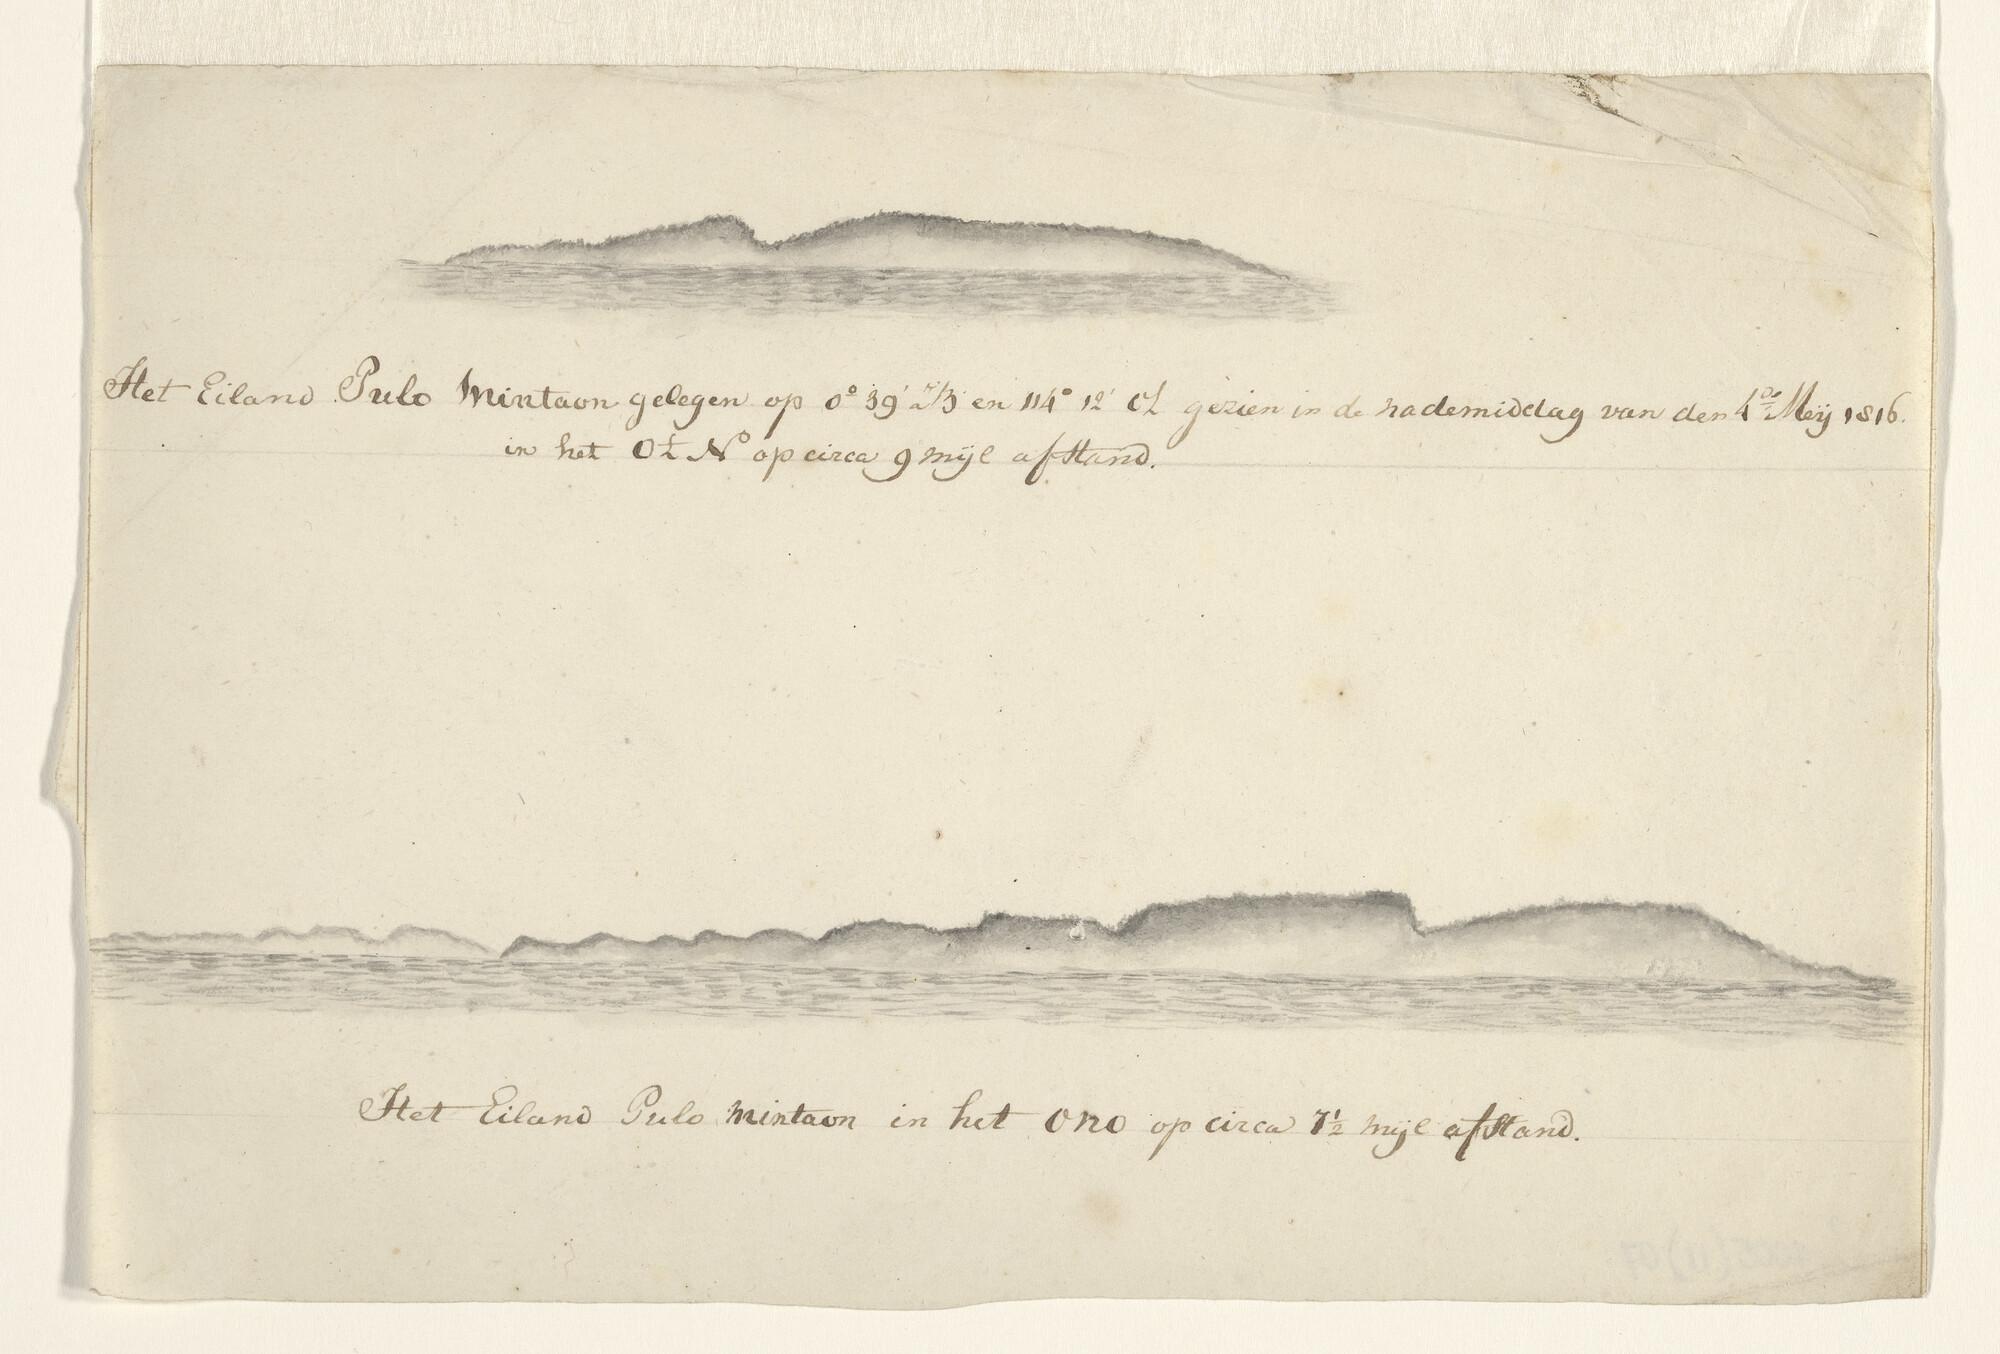 Het Eiland Pulo Mintaon gelegen op 0° 39' ZB en 114° 12' OL gezien in de nademiddag van den 4de Meij 1816.
in het OtN° op circa 9 mijl afstand.
Het Eiland Pulo Mintaon in het ONO op circa 7½ mijl afstand.